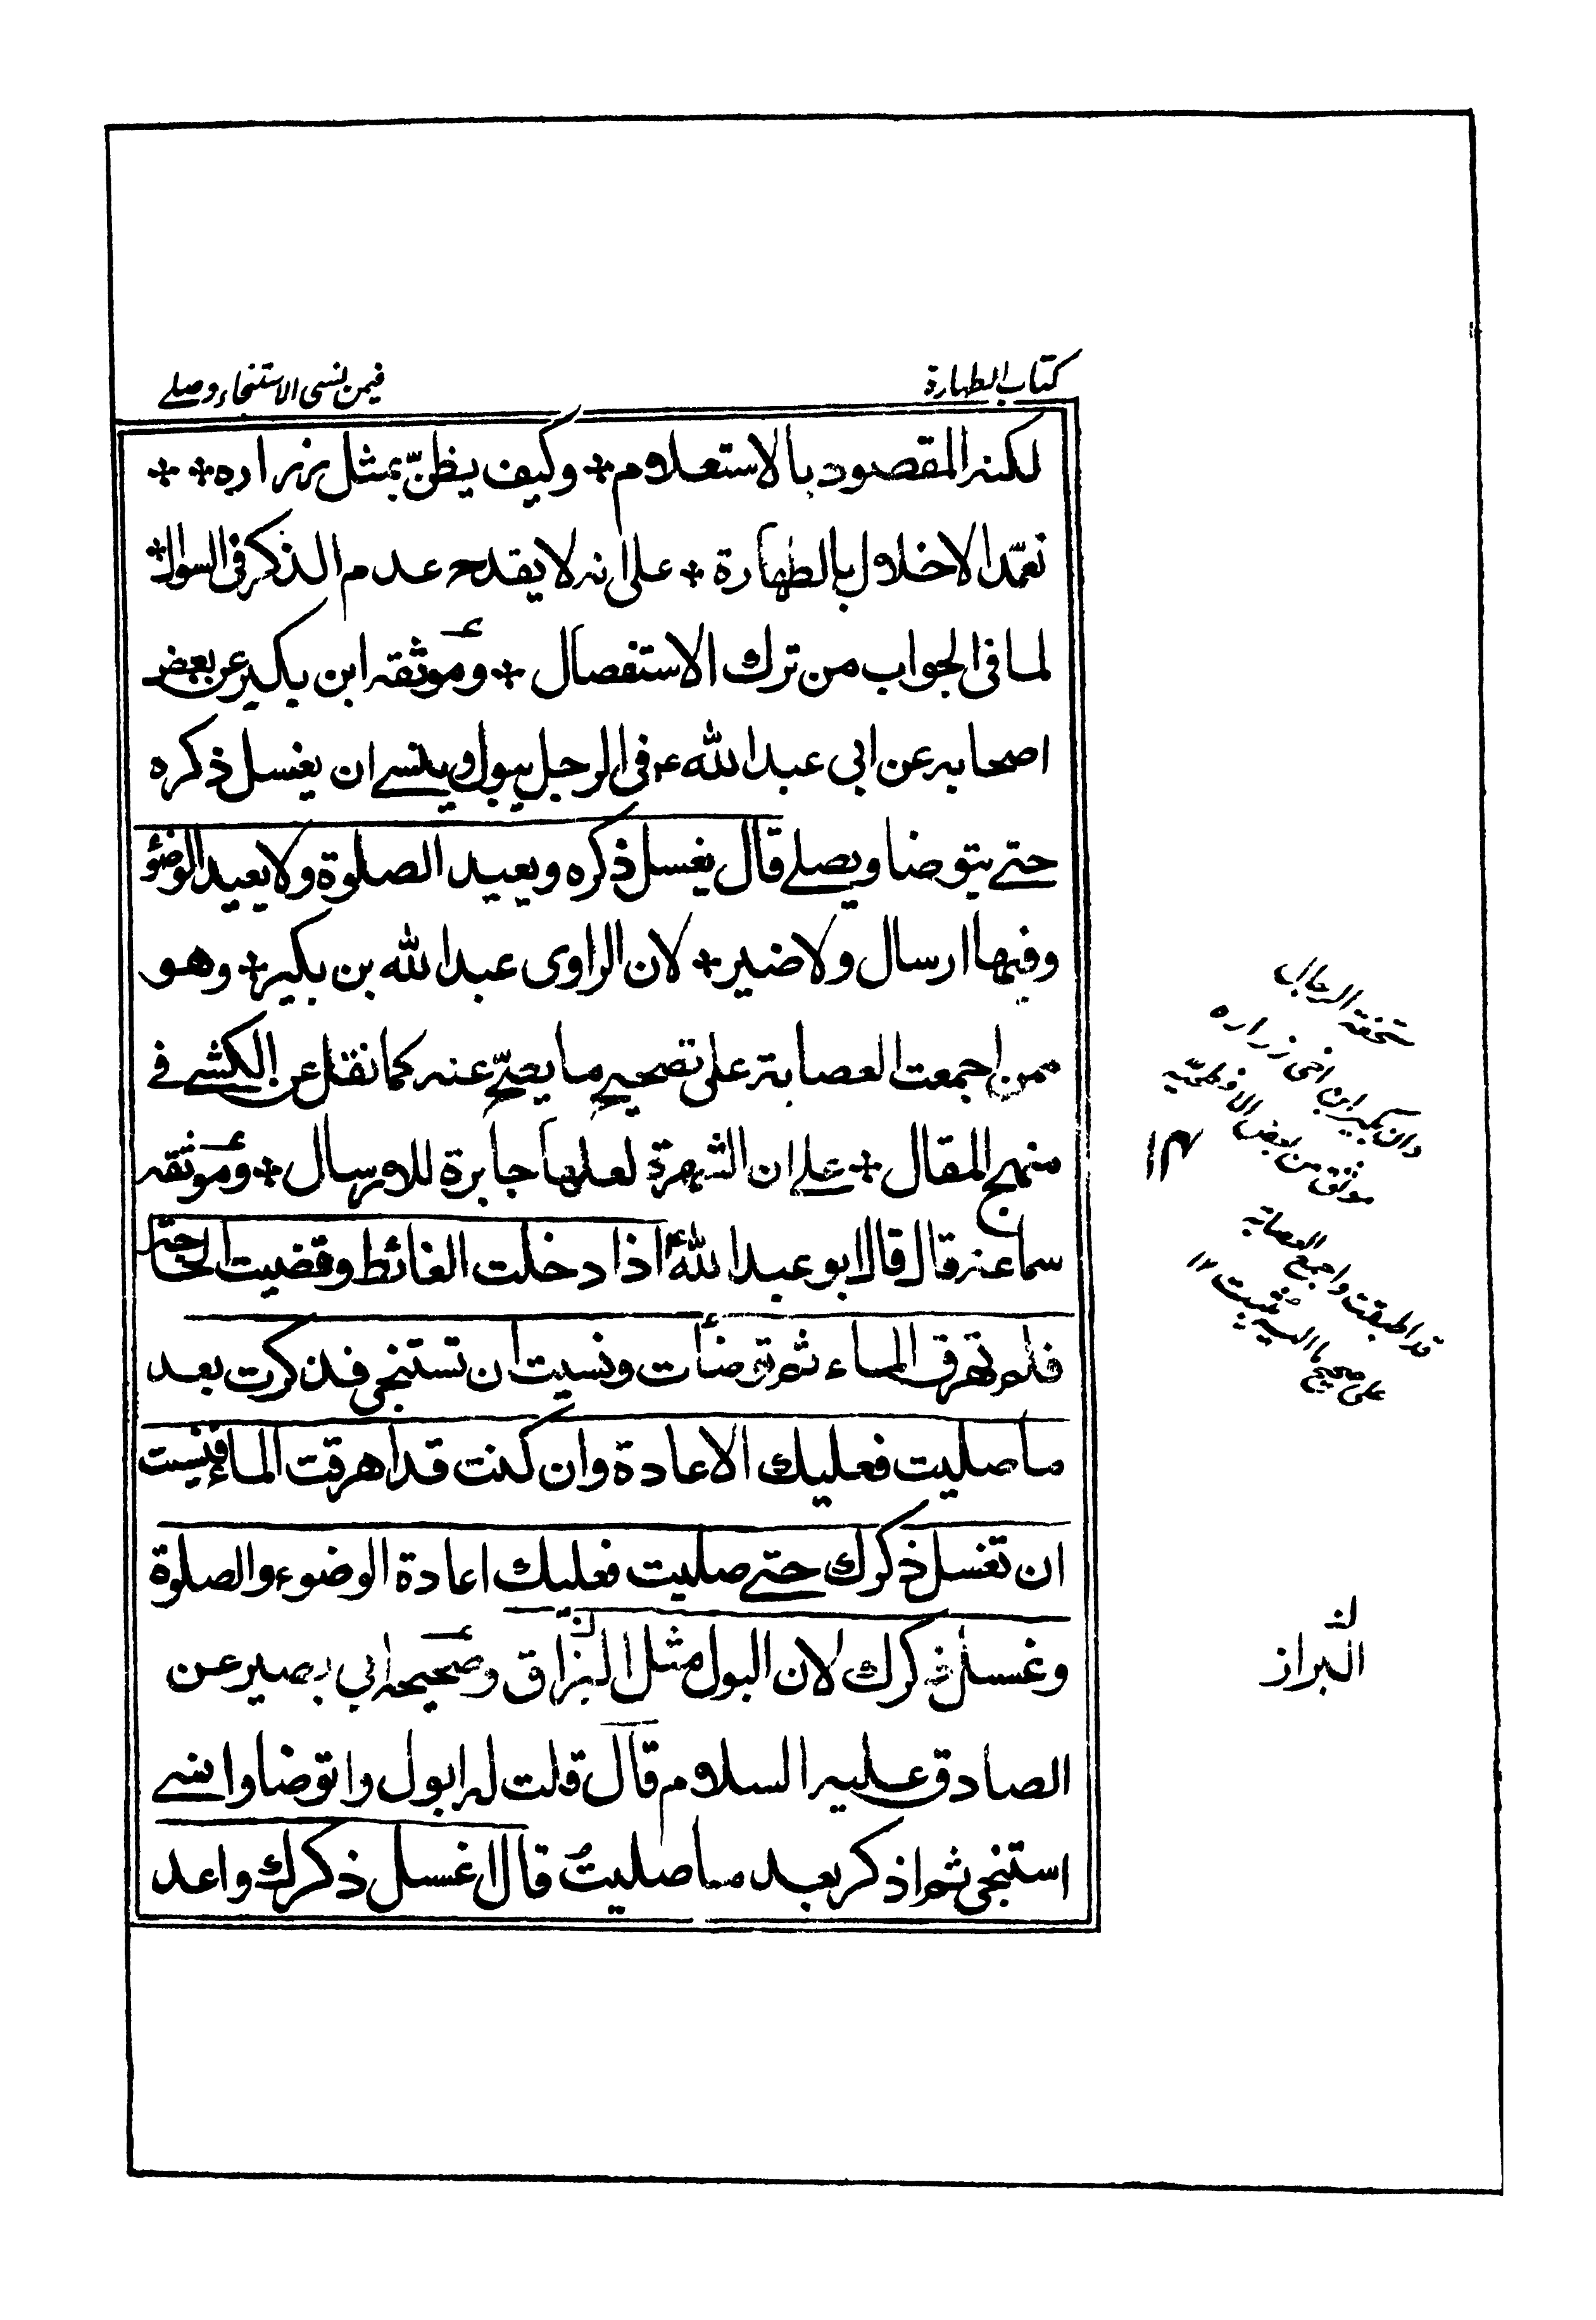 كتاب الطهارة
فيمن نسى الاستنجاء وصلے
لكنه المقصود بالاستعلام * وكيف يظنّ بمثل زراره * *
تعمّد الاخلال بالطهارة * على انه لا يقدح عدم الذكر فى السوال *
لما فى الجواب من ترك الاستفصال * وموثقه ابن بكير عن بعض
اصحابه عن ابى عبد الله ع فى الرجل يبول وينسے ان يغسل ذكره
حتے يتوضا ويصلے قال يغسل ذكره ويعيد الصلوة ولا يعيد الوضوء
وفيها ارسال ولا ضير * لان الراوى عبد الله بن بكير * وهو
ممن اجمعت العصابة على تصحيح ما يصحّ عنه كما نقل عن الكشے فے
منهج المقال * علے ان الشهرة لعلها جابرة للارسال * وموثقه
سماعة قال قال ابو عبد الله ع اذا دخلت الغائط وقضيت الحاجة
فلم تهرق الماء ثم توضأت ونسيت ان تستنجى فذكرت بعد
ما صليت فعليك الاعادة وان كنت قد اهرقت الماء فنسيت
ان تغسل ذكرك حتے صليت فعليك اعادة الوضوء والصلوة
وغسل ذكرك لان البول مثل البزاق وصحيحه ابي بصير عن
الصادق عليه السلام قال قلت له ابول واتوضا وانسے
استنجى ثم اذكر بعد ما صليت قال اغسل ذكرك واعد
تحفة الرجال
وان بكير ابن اخى زراره
موثق من بعض الافطحيّه
۱۲
قد اطبقت واجمع العصابه
على صحيح ما اليه
البراز